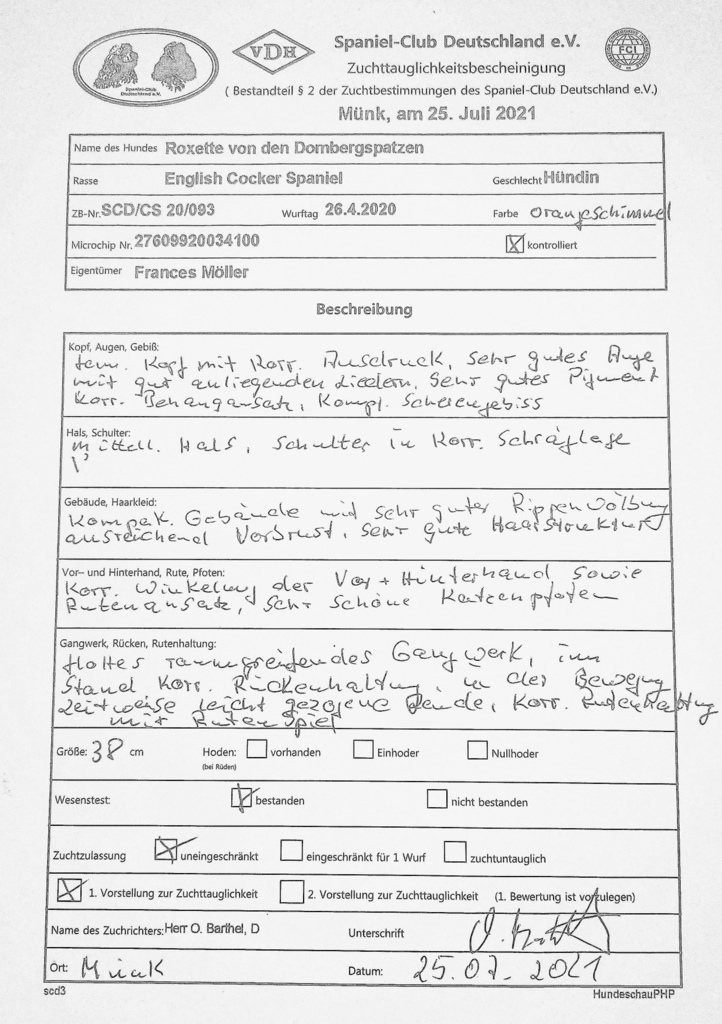 Spaniel-Club
Deutschland e.V.
VDH
FCI
Spaniel-Club Deutschland e.V.
Zuchttauglichkeitsbescheinigung
( Bestandteil § 2 der Zuchtbestimmungen des Spaniel-Club Deutschland e.V.)
Münk, am 25. Juli 2021
Name des Hundes Roxette von den Dombergspatzen
Rasse English Cocker Spaniel Geschlecht Hündin
ZB-Nr. SCD/CS 20/093 Wurftag 26.4.2020 Farbe orangeschimmel
Microchip Nr. 27609920034100 kontrolliert
Eigentümer Frances Möller
Beschreibung
Kopf, Augen, Gebiß:
fem. Kopf mit korr. Ausdruck, sehr gutes Auge
mit gut anliegenden Liedern, sehr gutes Pigment
korr. Behangansatz, kompl. Scherengebiss
Hals, Schulter:
mittell. Hals, Schulter in korr. Schräglage
Gebäude, Haarkleid:
kompak. Gebäude mit sehr guter Rippenwölbung
ausreichend Vorbrust, sehr gute Haarstruktur
Vor- und Hinterhand, Rute, Pfoten:
korr. Winkelung der Vor + Hinterhand sowie
Rutenansatz, sehr schöne Katzenpfoten
Gangwerk, Rücken, Rutenhaltung:
flottes raumgreifendes Gangwerk, im
Stand korr. Rückenhaltung, in der Bewegung
zeitweise leicht gezogene Lende, korr. Rutenhaltung
mit Rutenspiel
Größe: 38 cm Hoden: vorhanden Einhoder Nullhoder
(bei Rüden)
Wesenstest: bestanden nicht bestanden
Zuchtzulassung uneingeschränkt eingeschränkt für 1 Wurf zuchtuntauglich
1. Vorstellung zur Zuchttauglichkeit 2. Vorstellung zur Zuchttauglichkeit (1. Bewertung ist vorzulegen)
Name des Zuchrichters: Herr O. Barthel, D Unterschrift
Ort: Münk Datum: 25.07.2021
scd3 HundeschauPHP